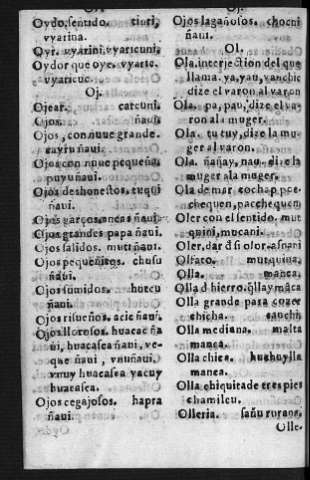 Oydo, sentido. rinri,
vyarina.
Oyr. vyarini, vyaricuni,
Oydor que oye. vyaric.
vyaricuc.
Oj.
Ojear. catcuni.
Ojos. ñaui.
Ojos, con nuue grande.
rayru ñaui.
Ojos con nuue pequeña.
puyu ñaui.
Ojos deshonestos. tuqui
ñaui.
Ojos garços, ancas ñaui.
Ojos grandes papa ñaui.
Ojos salidos. muti ñaui.
Ojos pequeñitos. chusu
ñaui.
Ojos sumidos. hutcu
ñaui.
Ojos risueños, acic ñaui.
Ojos llorosos. huacac ña
ui, huacasca ñaui, ve-
que ñaui, vnuñaui.
vnuy huacasca yacuy
huacasca.
Ojos cegajosos. hapra
ñaui.
Ojos lagañosos. chocni
ñaui.
Ol.
Ola. interjection del que
llama. ya, yau, yanchic
dize el varon al varon
Ola. pa, pau, dize el va-
ron a la muger.
Ola. tu tuy, dize la mu-
ger al varon.
Ola. ñañay, nau. dize la
muger a la muger.
Ola de mar cochap poc-
chequen, paccchequen
Oler con el sentido. mut
quini, mucani.
Oler, dar d si olor. asnani
Olfato. mutquina.
Olla. manca.
Olla d hierro. qllay máca
Olla grande para cozer
chicha. sauchi
Olla mediana. malta
manca.
Olla chica. huchuylla
manca.
Olla chiquita de tres pies
chamilcu.
Olleria. sañu rurana.
Olle-